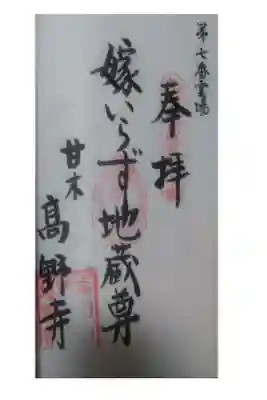 第七番霊場
奉拝
嫁いらず地蔵尊
甘木
高野寺